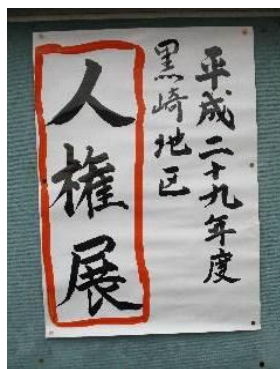 平成二十九年度
黒崎地区
人権展